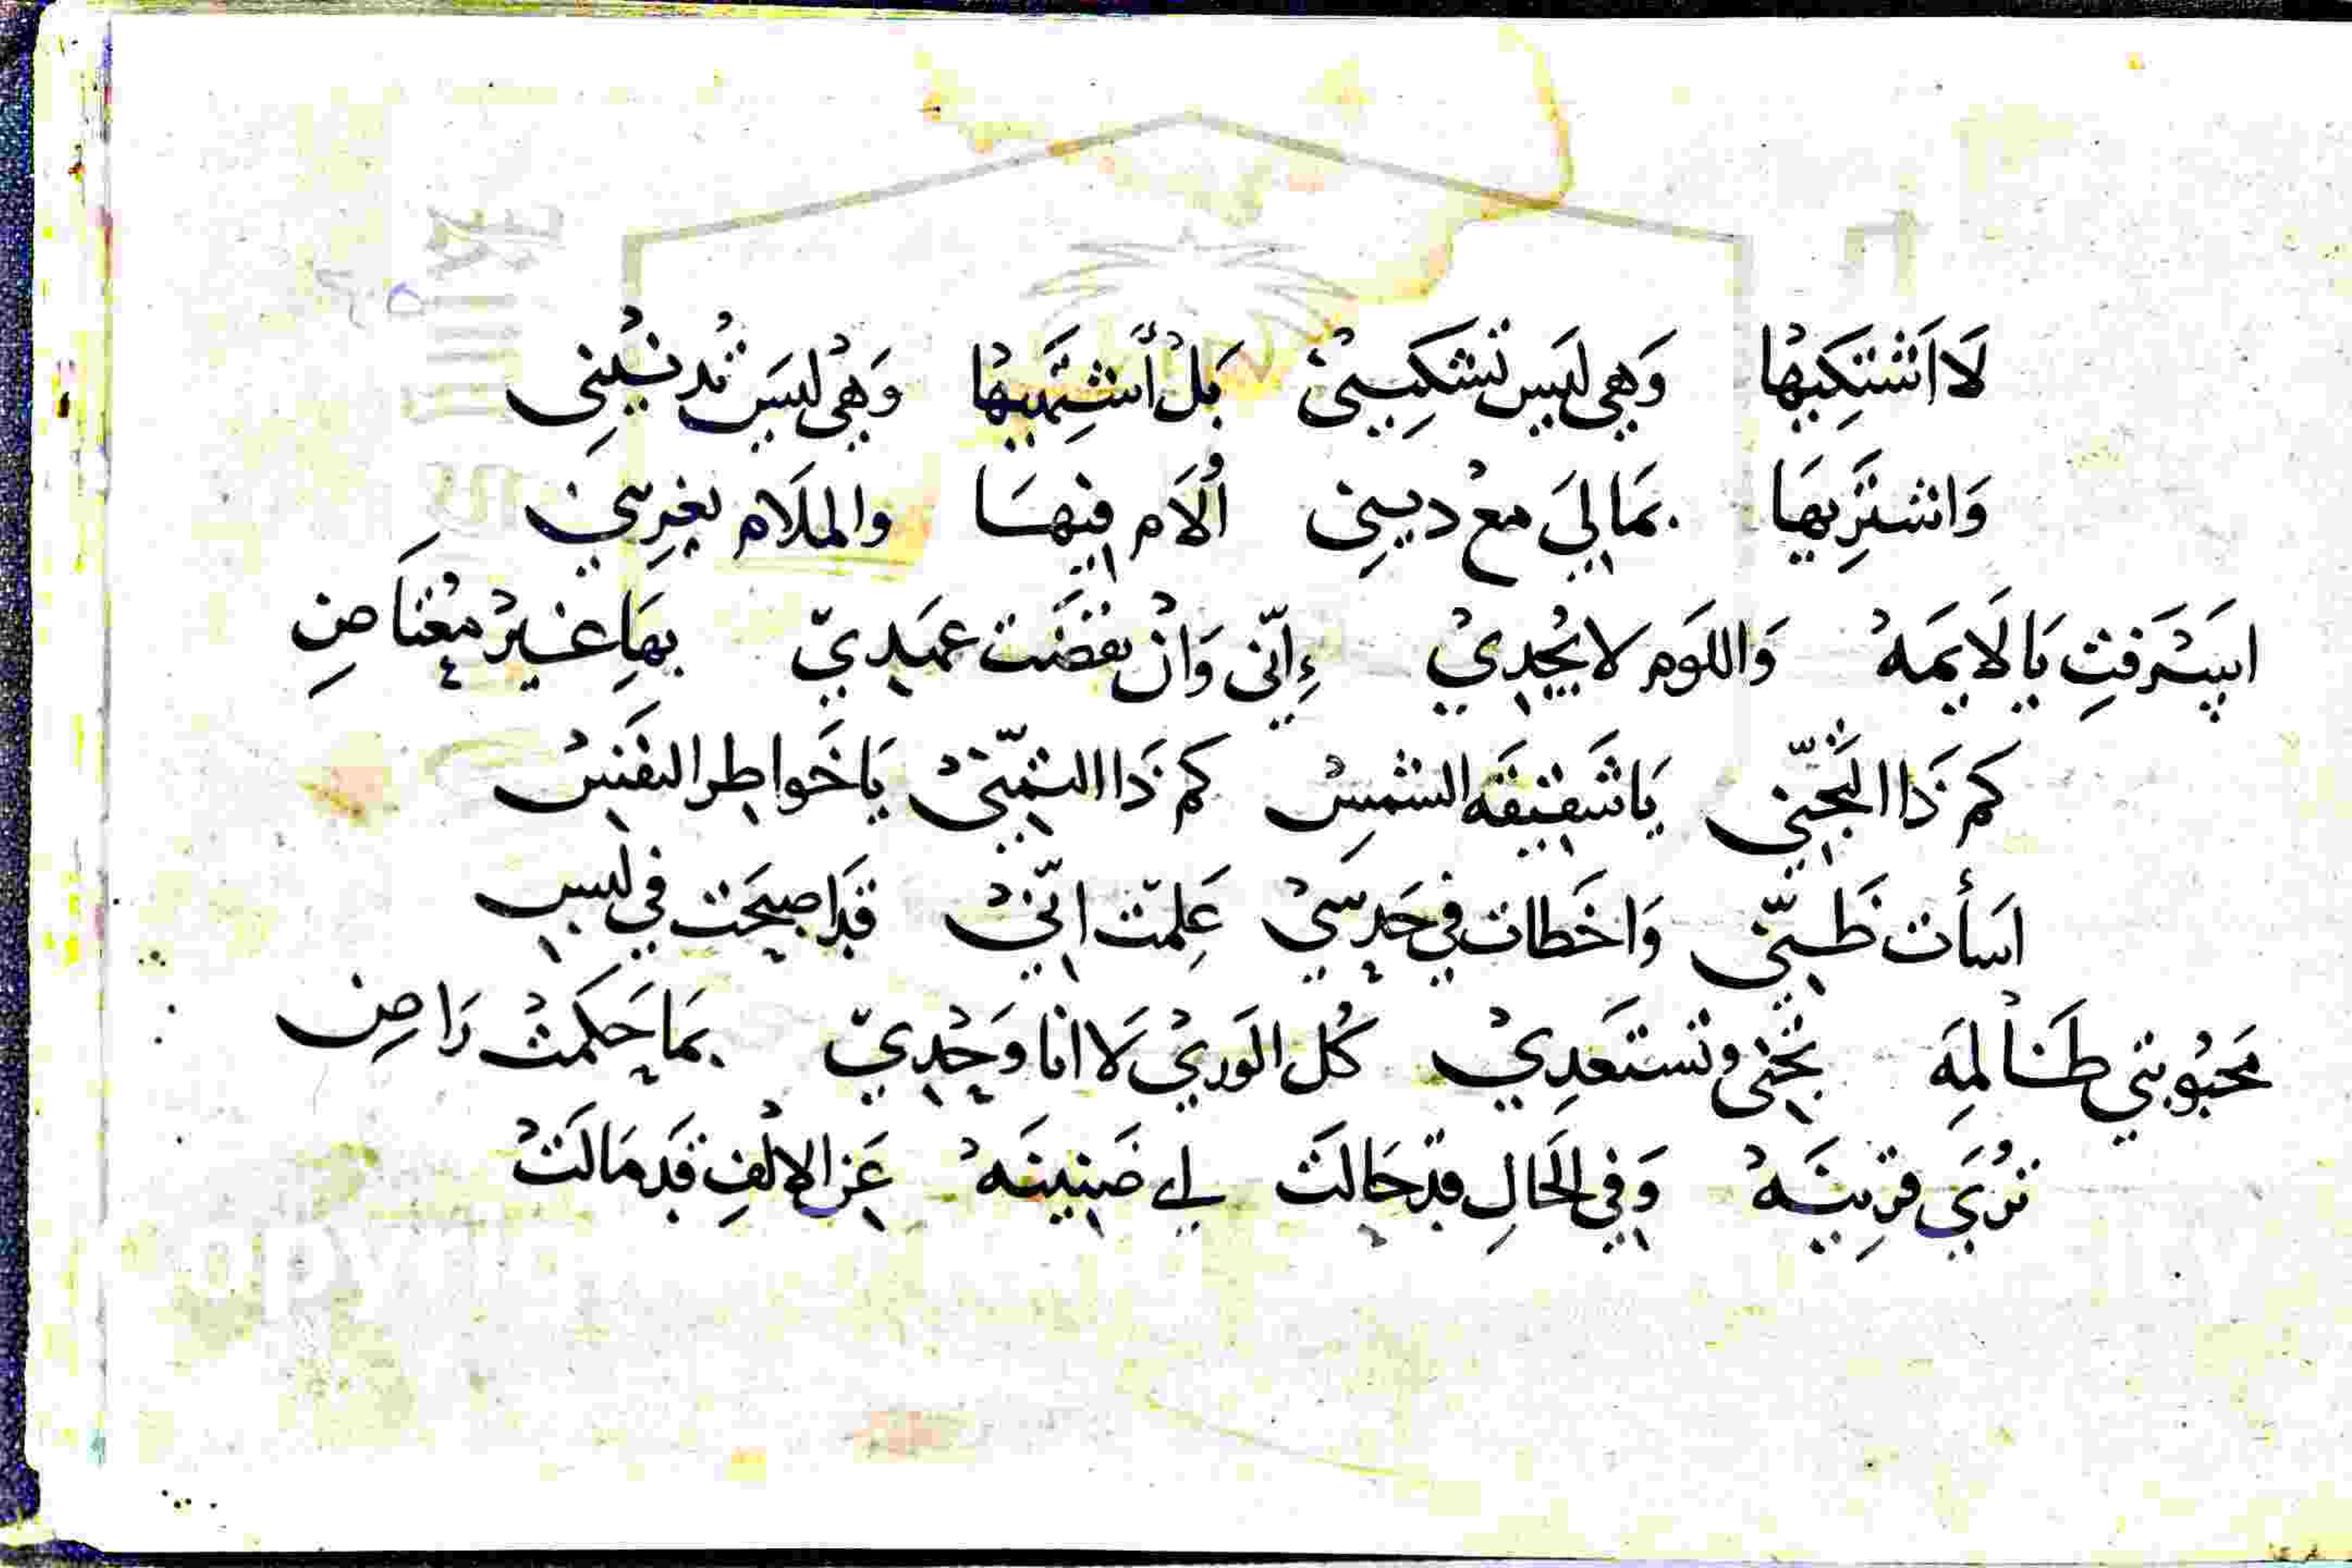 لَا اَشْتَكِيْها وَهِي لَيَس تَشْكِيني بَلْ أشتَهِيْها وَهْي ليَس تُدنيْنِي
وَاشتَرِيهَا بمَا لِيَ معْ ديِني اُلَام فِيهَا والملَام يغرِيني
يَا لَايمَهْ وَاللوَم لا يُجْدِيْ ءِانّي وَانْ نقضَت عهَدِيّ بهَا غيْر مُعْتَاضِ
كم ذَا التَجنّي يَا شَقيقَه الشمسْ كم ذَا التمنّيْ يَا خَواطر النفسْ
اسَأت ظنّي وَاخَطات في حَدسيْ عَلِمت انّنيْ قدَ اصبحَت في لبس
محَبوُبتي ظَالمِه تجْني وتْستعَدِيْ كُل الوَريْ لَا انا وَحْدِيّ بمَا حَكمتْ رَاضِ
تُرَي قرِينَهْ وَفي الحَالِ قد حَالَتْ لي ضَنينَهْ عَن الإلْفِ قَد مَالَتْ